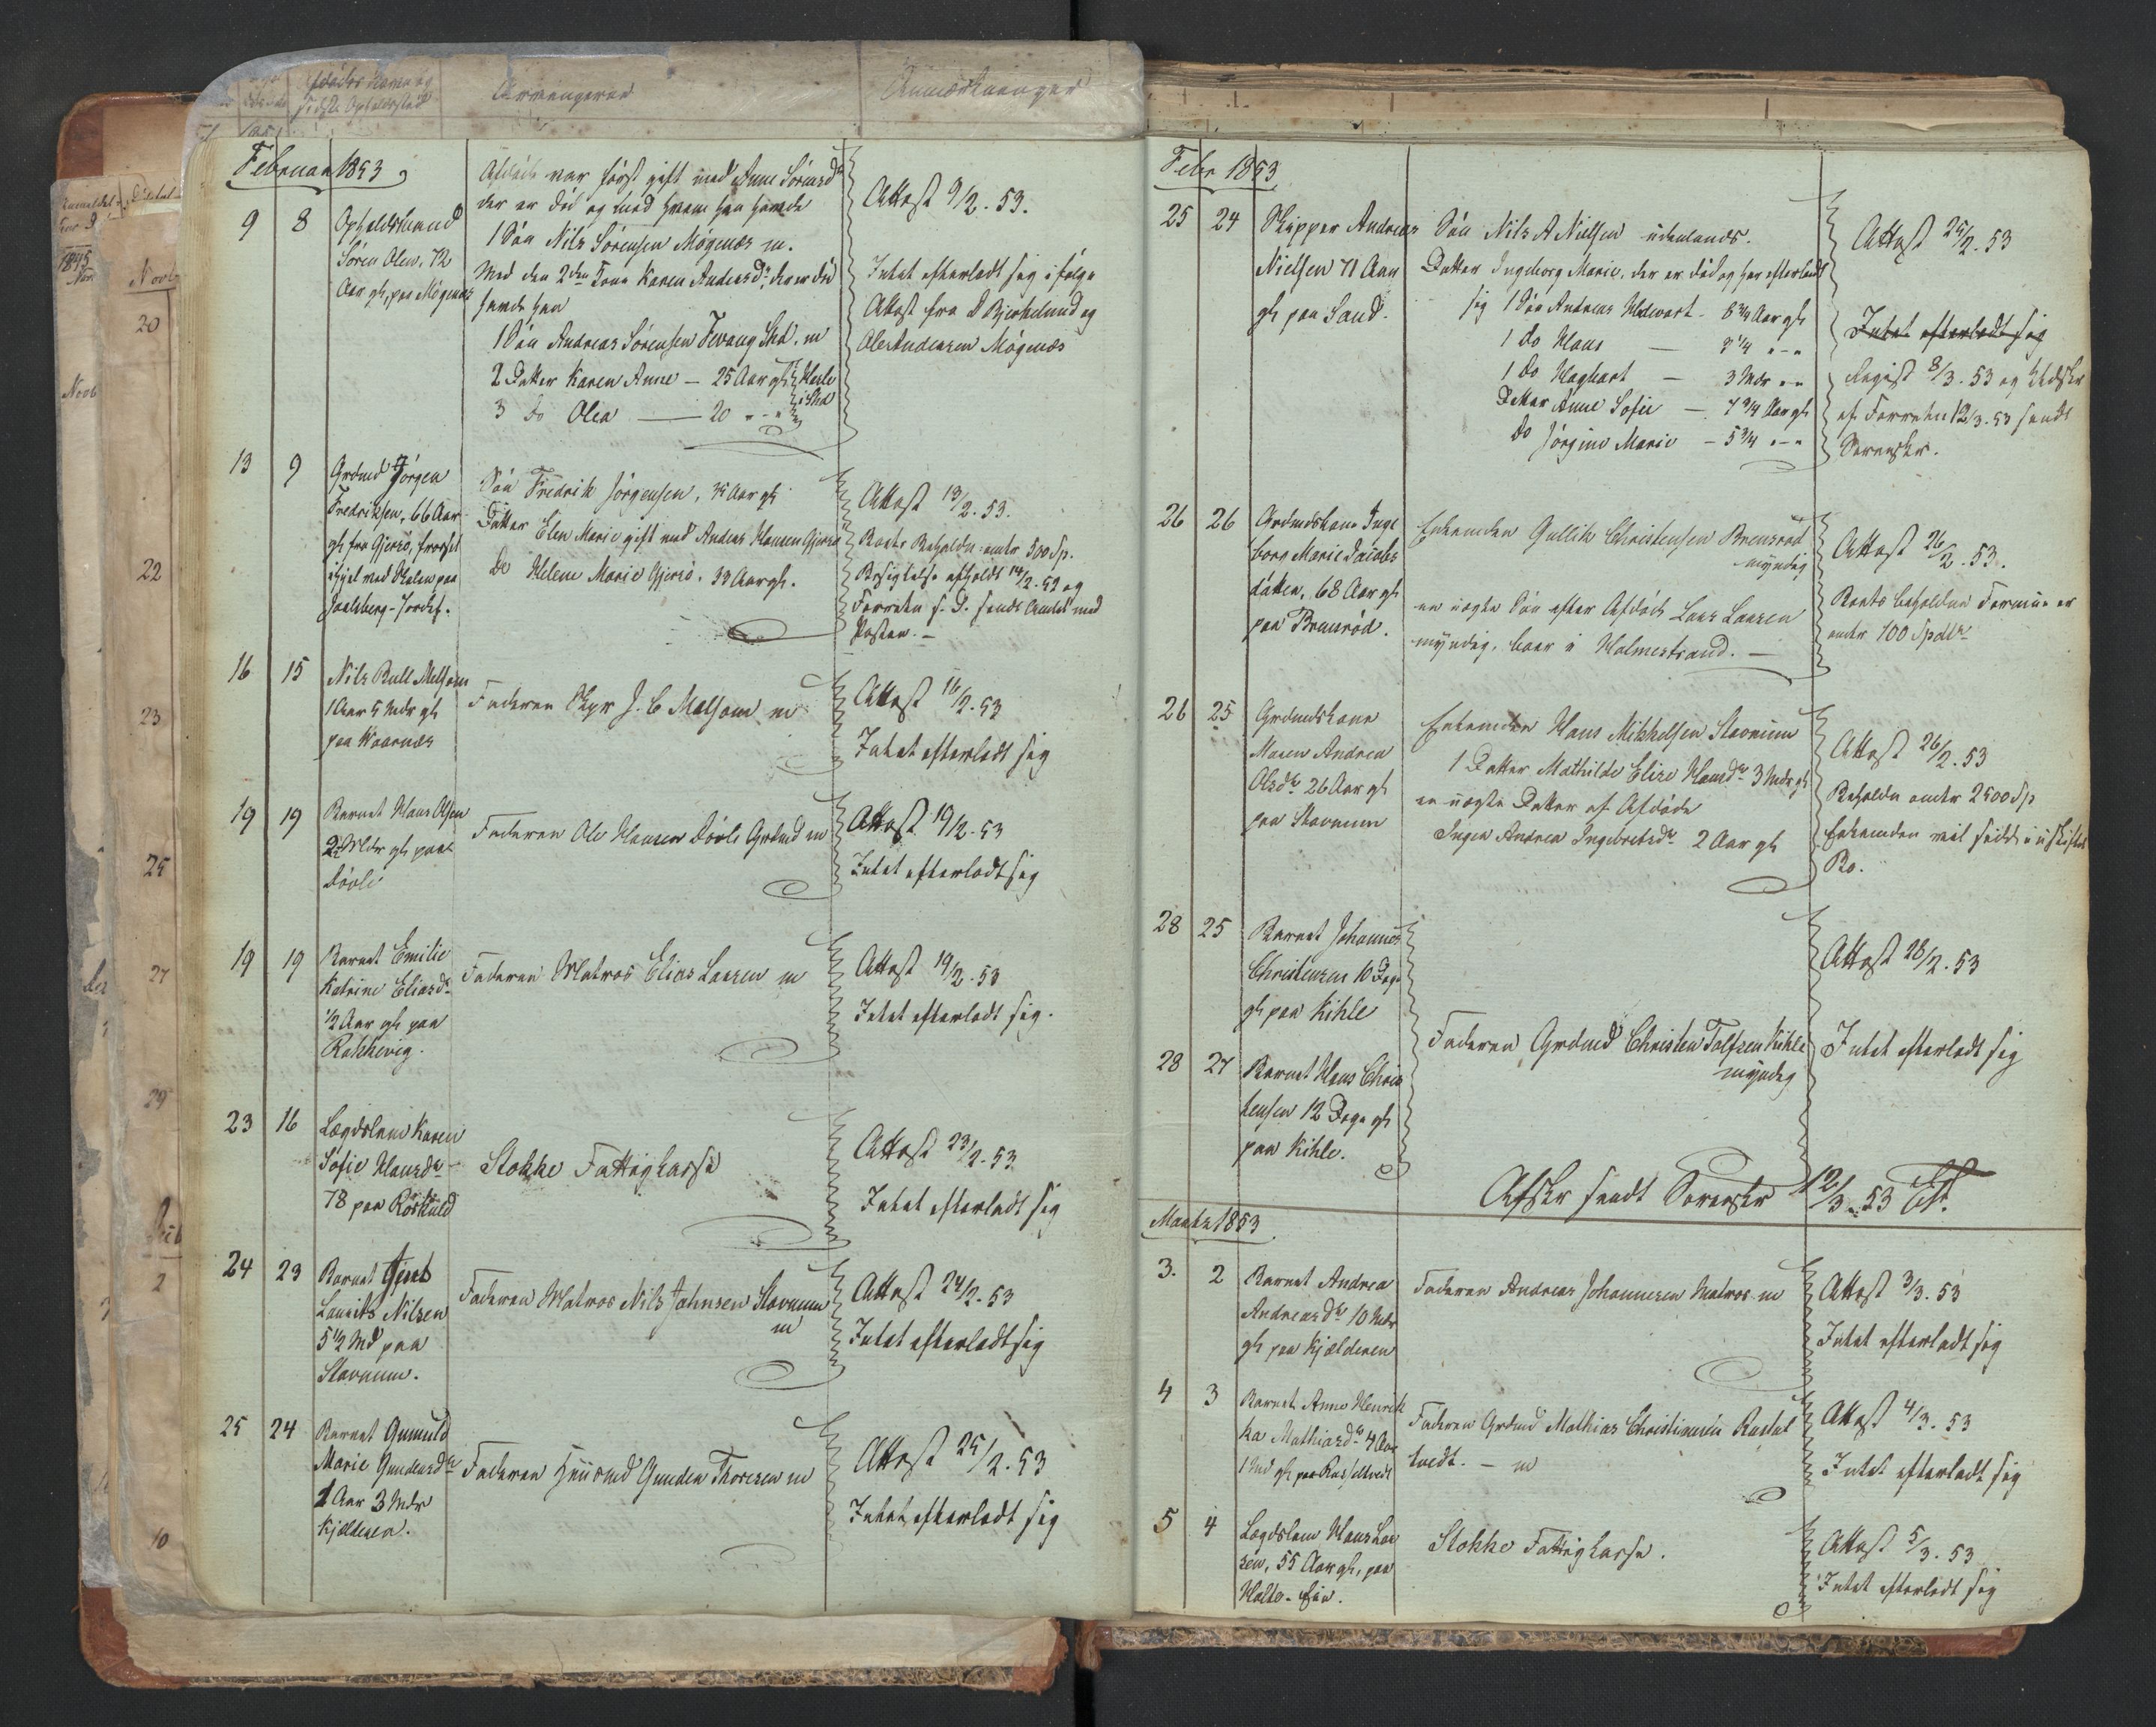 Afdødes Navn og
sidste Opholdssted
Arvingerne
Anmærkninger
Novb
20
Novb
22
23
25
27
29
2
10
Februar 1853
9 8 Opholdsmand
Søren Olsen, 72
Aar gl, paa Møgenæs
Afdøde var først gift med Anne Sørensd
der er død og med hvem han havde
1 Søn Nils Sørensen Møgenæs m.
Med den 2den Kone Karen Andersdr, der er død
havde han
1 Søn Andreas Sørensen Fevang Skd. m
2 Datter Karen Anne — 25 Aar gl
3 Do Olea — 20 " — "
Attest 9/2. 53.
Intet efterladt sig i følge
Attest fra
Ole Andersen Møgenæs
13 9 Grdmd Jørgen
Fredriksen, 66 Aar
gl fra Gjersø,
ihjel med paa
Jarlsberg
Søn Fredrik Jørgensen, 35 Aar gl
Datter Elen Marie gift med Andreas Hansen Gjersø
Do Helene Marie Gjersø, 33 Aar gl.
Attest 13/2. 53.
Boets Beholdn omtr 300 Sp.
Besigtelse afholdt 14/2. 53 og
Forretn s. D. sendt Amtet med
Posten. —
16 15 Nils Bull Melsom
1 Aar 5 Mdr gl
paa Waarnæs
Faderen Skpr J. C Melsom m
Attest 16/2. 53
Intet efterladt sig
19 19 Barnet Hans Olsen
2 Mdr gl paa
Døvle
Faderen Ole Hansen Døvle Grdmd m
Attest 19/2. 53
Intet efterladt sig
19 19 Barnet Emilie
Katrine Eliasdr
1/2 Aar gl paa
Rakkevig.
Faderen Matros Elias Larsen m
Attest 19/2. 53
Intet efterladt sig.
23 16 Lægdslem Karen
Sofie Hansdr
78 paa Röskuld
Stokke Fattigkasse
Attest 23/2. 53
Intet efterladt sig
24 23 Barnet
Laurits Nilsen
5 1/2 Md paa
Stavnum.
Faderen Matros Nils Johnsen Stavnum
m
Attest 24/2. 53
Intet efterladt sig
25 24 Barnet Gunnild
Marie Gundersdr
1 Aar 3 Mdr
Kjælderen.
Faderen Huusmd Gunder Thoresen m
Attest 25/2. 53
Intet efterladt sig
Febr 1853
25 24 Skipper Andreas
Nielsen 71 Aar
gl paa Sand.
Søn Nils A Nielsen udenlands.
Datter Ingeborg Marie, der er død og har efterladt
sig 1 Søn Andreas — 8 3/4 Aar gl
1 Do Hans — 3 1/4 " — "
1 Do Haghart — 3 Mdr " — "
Datter Anne Sofie — 7 3/4 Aar gl
Do Jørgine Marie — 5 3/4 " — "
Attest 25/2. 53
Intet efterladt sig
Regist 8/3. 53 og Udskr
af Forretn 12/3. 53 sendt
Sorenskr.
26 26 Grdmdskone Inge
borg Marie Jacobs
datter, 68 Aar gl
paa Brunrød.
Enkemden Gullik Christensen Brunrød
myndig
en uægte Søn efter Afdøde Lars Larsen
myndig, boer i Holmestrand. —
Attest 26/2. 53.
Boets beholdne Formue er
omtr 100 Spdlr
26 25 Grdmdskone
Maren Andrea
Olsdr 26 Aar gl
paa Stavnum
Enkemden Hans Mikkelsen Stavnum
1 Datter Mathilde Elise Hansdr 3 Mdr gl
en uægte Datter af Afdøde
Ingen Andrea Ingebretsdr 2 Aar gl
Attest 26/2. 53
Beholdn omtr 2500 Sp
Enkemden vil sidde i uskiftet
Bo.
28 25 Barnet Johannes
Christensen 10 Dage
gl paa Kihle
28 27 Barnet Hans Chris
tensen 12 Dage gl
paa Kihle.
Faderen Grdmd Christen Tolfsen Kihle
myndig
Attest 28/2. 53
Intet efterladt sig
Afskr sendt Sorenskr 12/3. 53
Marts 1853
3. 2 Barnet Andrea
Andreasdr 10 Mdr
gl paa Kjælderen
Faderen Andreas Johannesen Matros m
Attest 3/3. 53
Intet efterladt sig
4 3 Barnet Anne Henrik
ka Mathiasdr 4 Aar
1 Md gl paa Rasteltvedt
Faderen Grdmd Mathias Christiansen Rastel
tvedt. — m
Attest 4/3. 53
Intet efterladt sig
5 4 Lægdslem Hans Lar
sen, 55 Aar gl, paa
Holte-Eie.
Stokke Fattigkasse.
Attest 5/3. 53
Intet efterladt sig